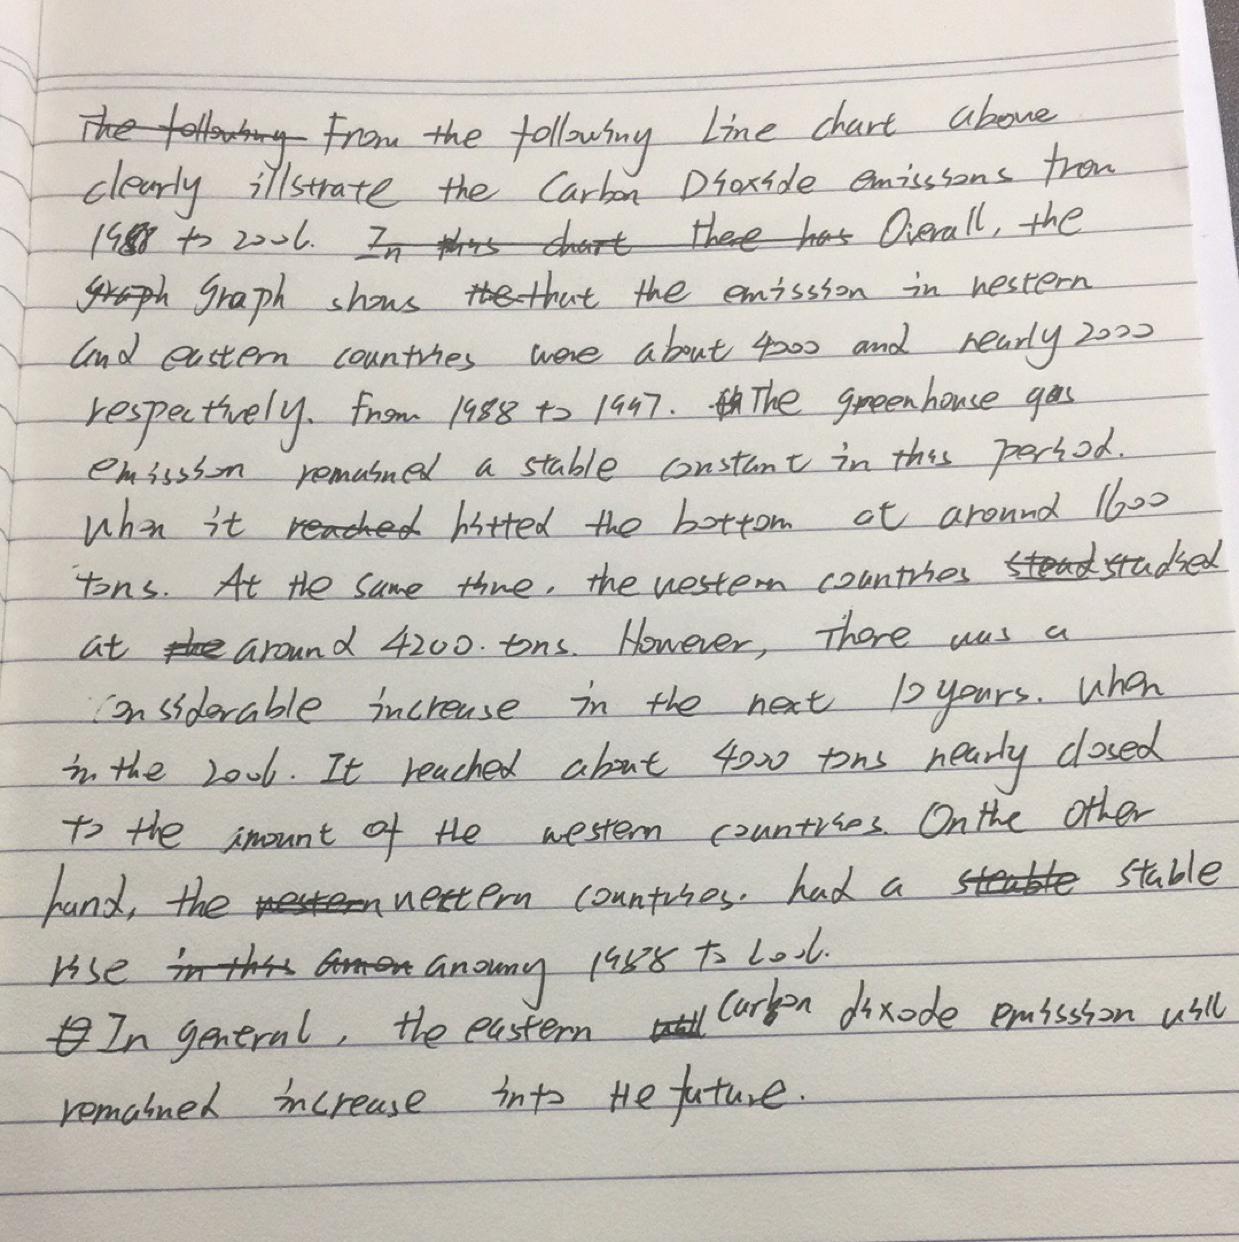 The following From the following Line chart above
clearly illstrate the Carbon Dioxide emissions from
1988 to 2006. In this chart there has Overall, the
graph Graph shows the that the emission in western
and eastern countries were about 4000 and nearly 2000
respectively. From 1988 to 1997. The greenhouse gas
emission remained a stable constant in this period.
When it reached hitted the bottom at around 1600
tons. At the same time, the western countries stead studied
at the around 4200. tons. However, There was a
considerable increase in the next 10 years. When
in the 2006. It reached about 4000 tons nearly closed
to the amount of the western countries. On the other
hand, the western western countries. had a steable stable
rise in this amon anoumy 1988 to 2006.
In general, the eastern will Carbon dixode emission will
remained increase into the future.